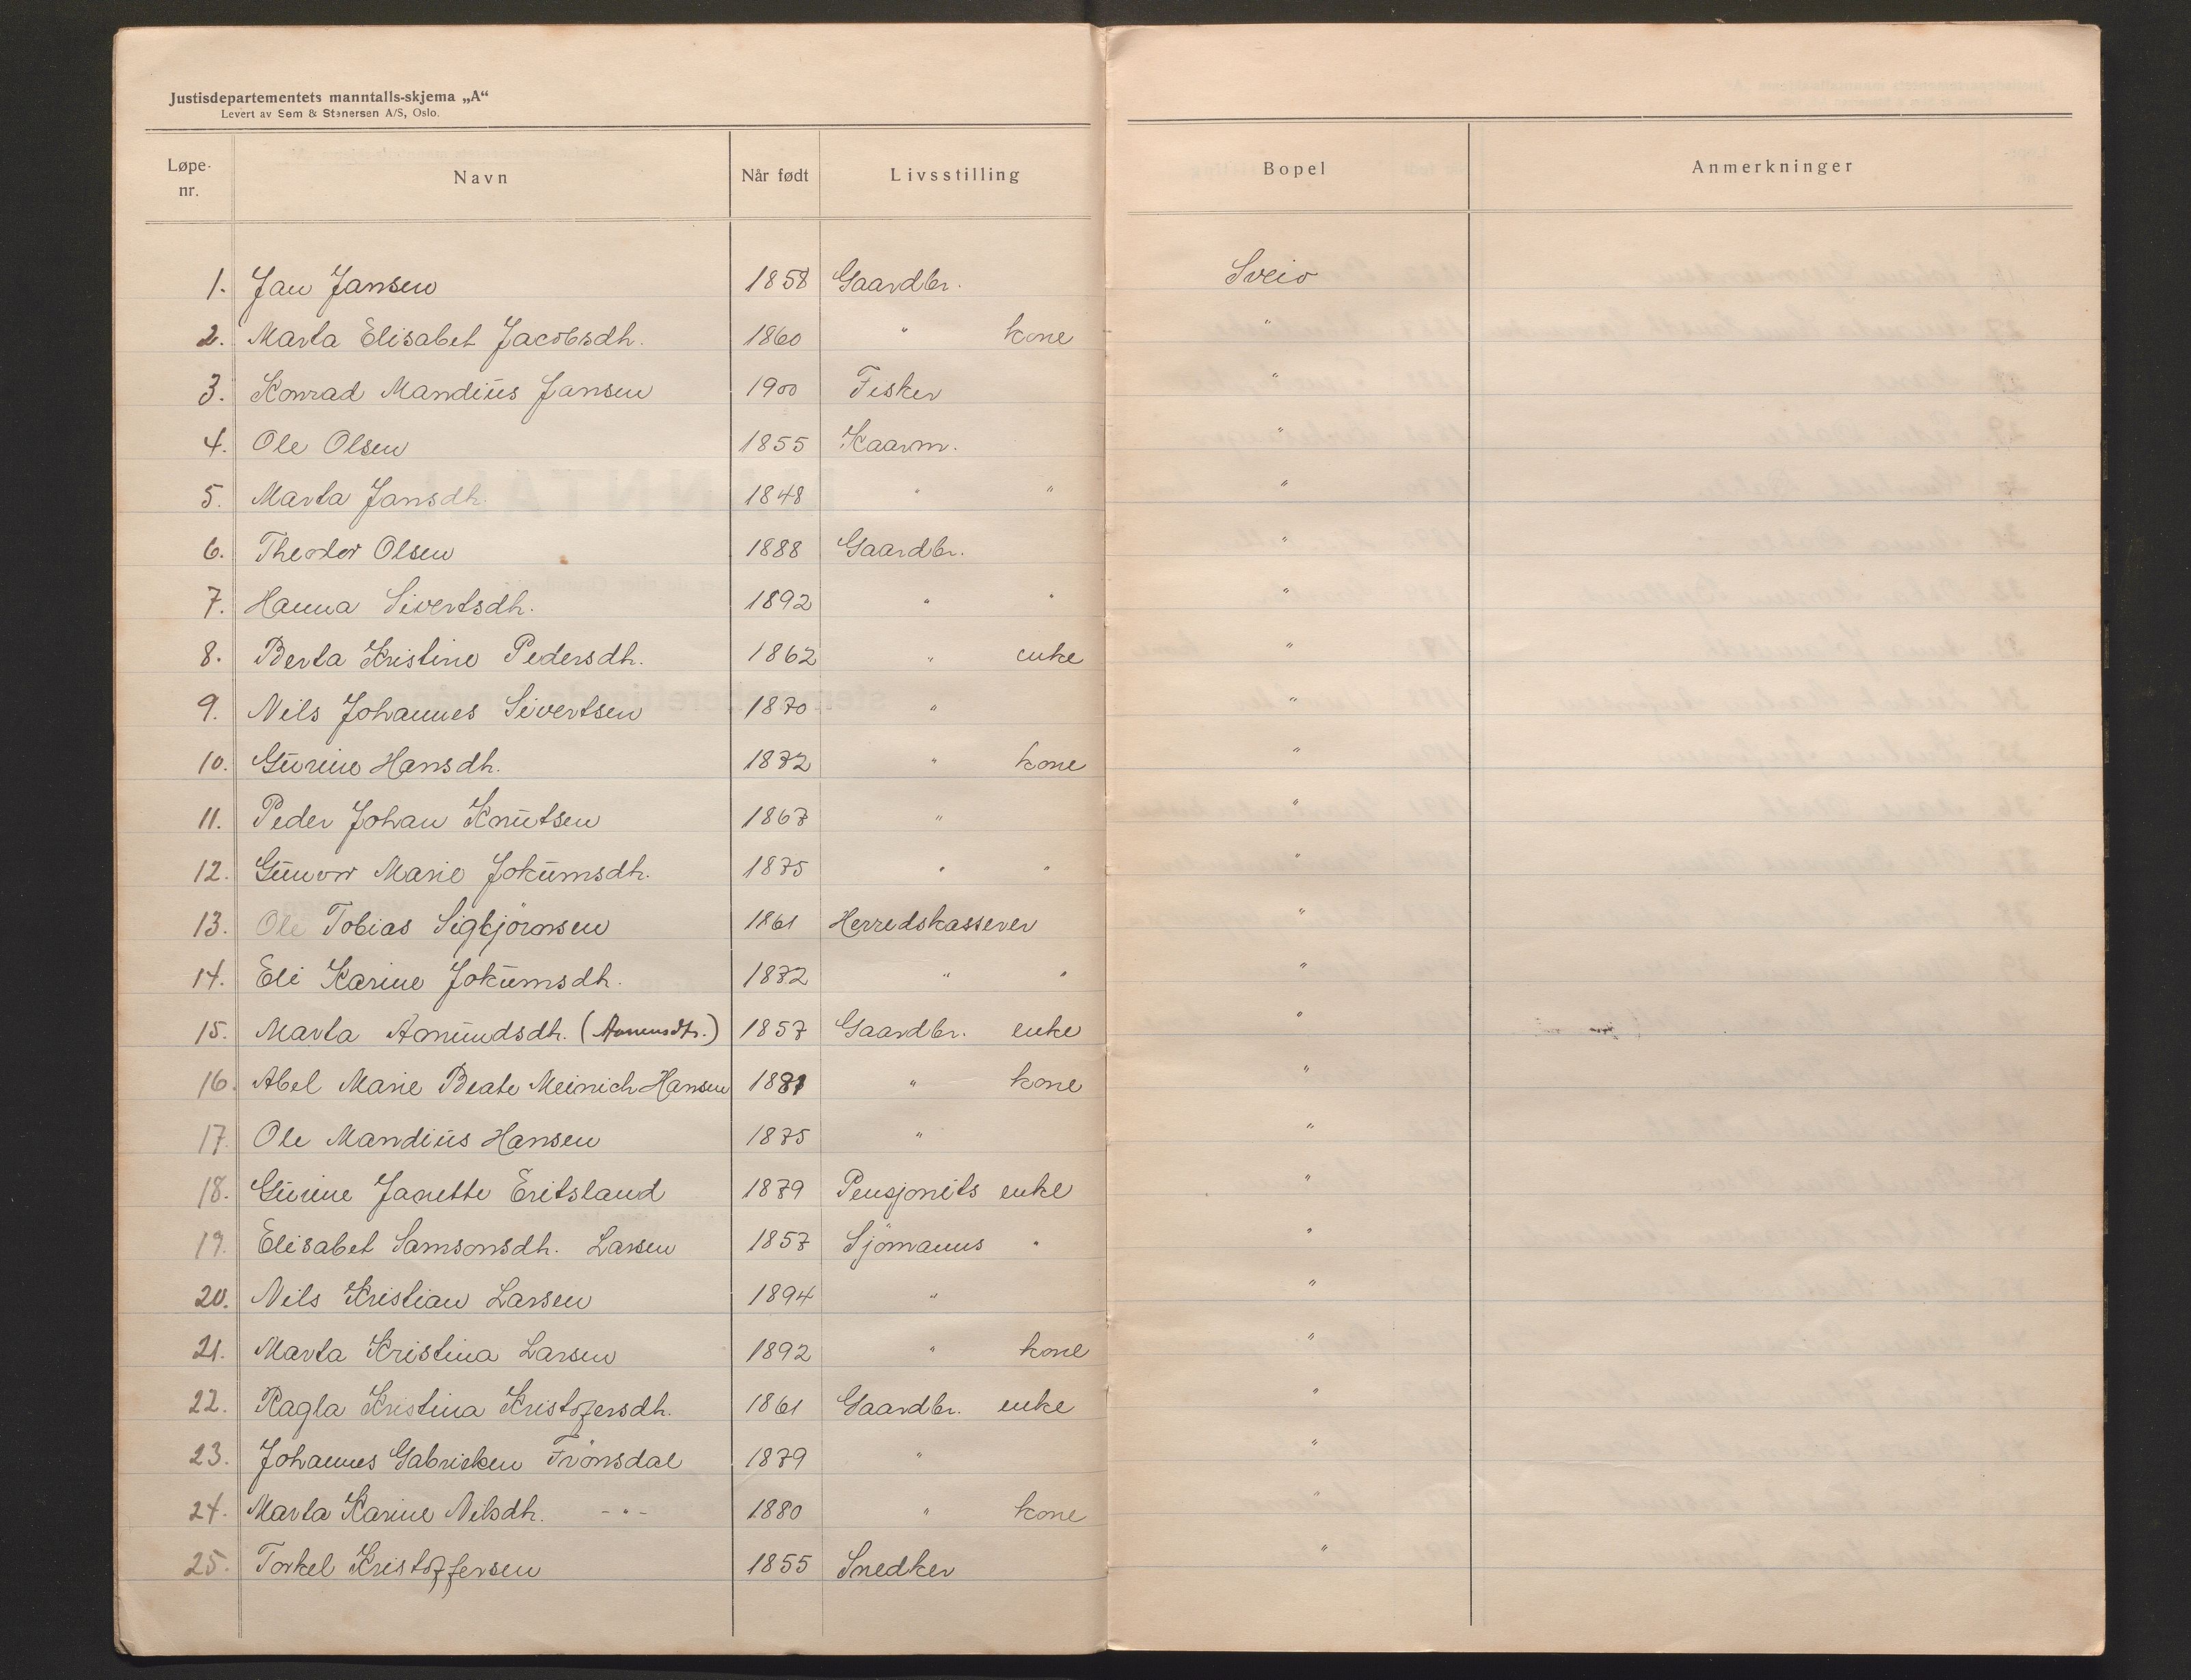 Justisdepartementets manntalls-skjema „A“
Levert av Sem & Stenersen A/S, Oslo.
Løpe-nr. Navn Når født Livsstilling Bopel Anmerkninger
1. Jan Jansen 1858 Gaardbr. Sveio
2. Marta Elisabet Jacobsdh. 1860 " kone "
3. Konrad Mandius Jansen 1900 Fisker "
4. Ole Olsen 1855 Kaarm. "
5. Marta Jansdh. 1848 " " "
6. Theodor Olsen 1888 Gaardbr. "
7. Hanna Sivertsdh. 1892 " " "
8. Berta Kristine Pedersdh. 1862 " enke "
9. Nils Johannes Sivertsen 1870 " "
10. Gurine Hansdh. 1872 " kone "
11. Peder Johan Knutsen 1867 " "
12. Gunvor Marie Jokumsdh. 1875 " " "
13. Ole Tobias Sigbjörnsen 1861 Herredskasserer "
14. Eli Karine Jokumsdh. 1872 " " "
15. Marta Amundsdh. ( ) 1857 Gaardbr. enke "
16. Abel Marie Beate Meinich Hansen 1881 " kone "
17. Ole Mandius Hansen 1875 " "
18. Gurine Janette Eritsland 1879 Pensjonits enke "
19. Elisabet Samsonsdh. Larsen 1857 Sjömanns " "
20. Nils Kristian Larsen 1894 " "
21. Marta Kristina Larsen 1892 " kone "
22. Ragla Kristina Kristofersdh. 1861 Gaardbr. enke "
23. Johannes Gabrielsen Trönsdal 1879 " "
24. Marta Karine Nilsdh. - " - 1880 " kone "
25. Torkel Kristoffersen 1855 Snedker "